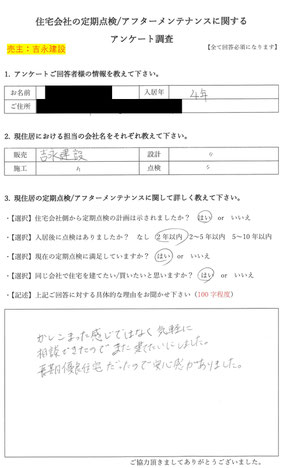 住宅会社の定期点検/アフターメンテナンスに関する
アンケート調査
売主：吉永建設
【全て回答必須になります】
1. アンケートご回答者様の情報を教えて下さい。
お名前 入居年 4年
ご住所
2. 現住居における担当の会社名をそれぞれ教えて下さい。
販売 吉永建設 設計 〃
施工 〃 点検 〃
3. 現住居の定期点検/アフターメンテナンスに関して詳しく教えて下さい。
・【選択】住宅会社側から定期点検の計画は示されましたか？ はい or いいえ
・【選択】入居後に点検はありましたか？ なし 2年以内 2～5年以内 5～10年以内
・【選択】現在の定期点検に満足していますか？ はい or いいえ
・【選択】同じ会社で住宅を建てたい/買いたいと思いますか？ はい or いいえ
・【記述】上記ご回答に対する具体的な理由をお聞かせ下さい（100字程度）
かしこまった感じではなく気軽に
相談できたのでまた建てたいにしました。
長期優良住宅だったので安心感がありました。
ご協力頂きましてありがとうございました。